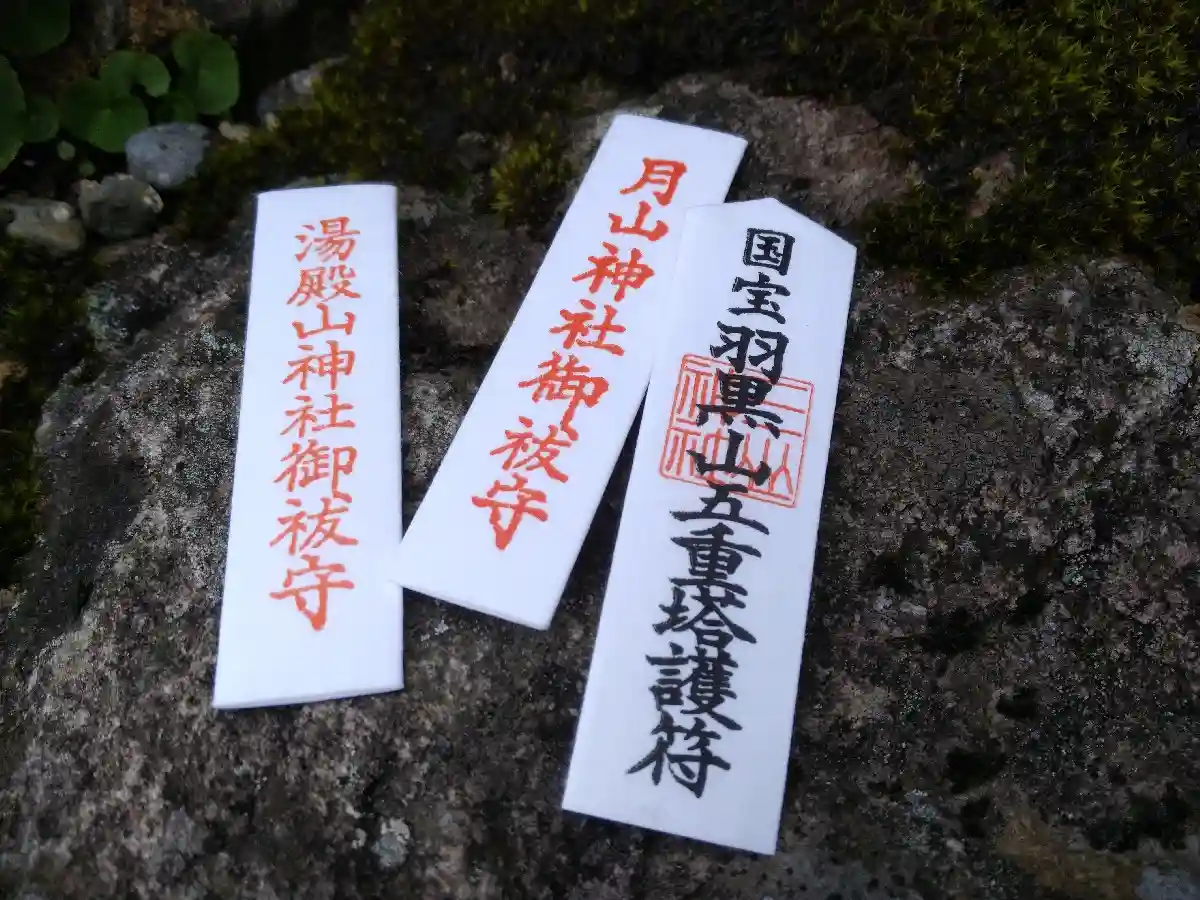 湯殿山神社御祓守
月山神社御祓守
国宝羽黒山五重塔護符